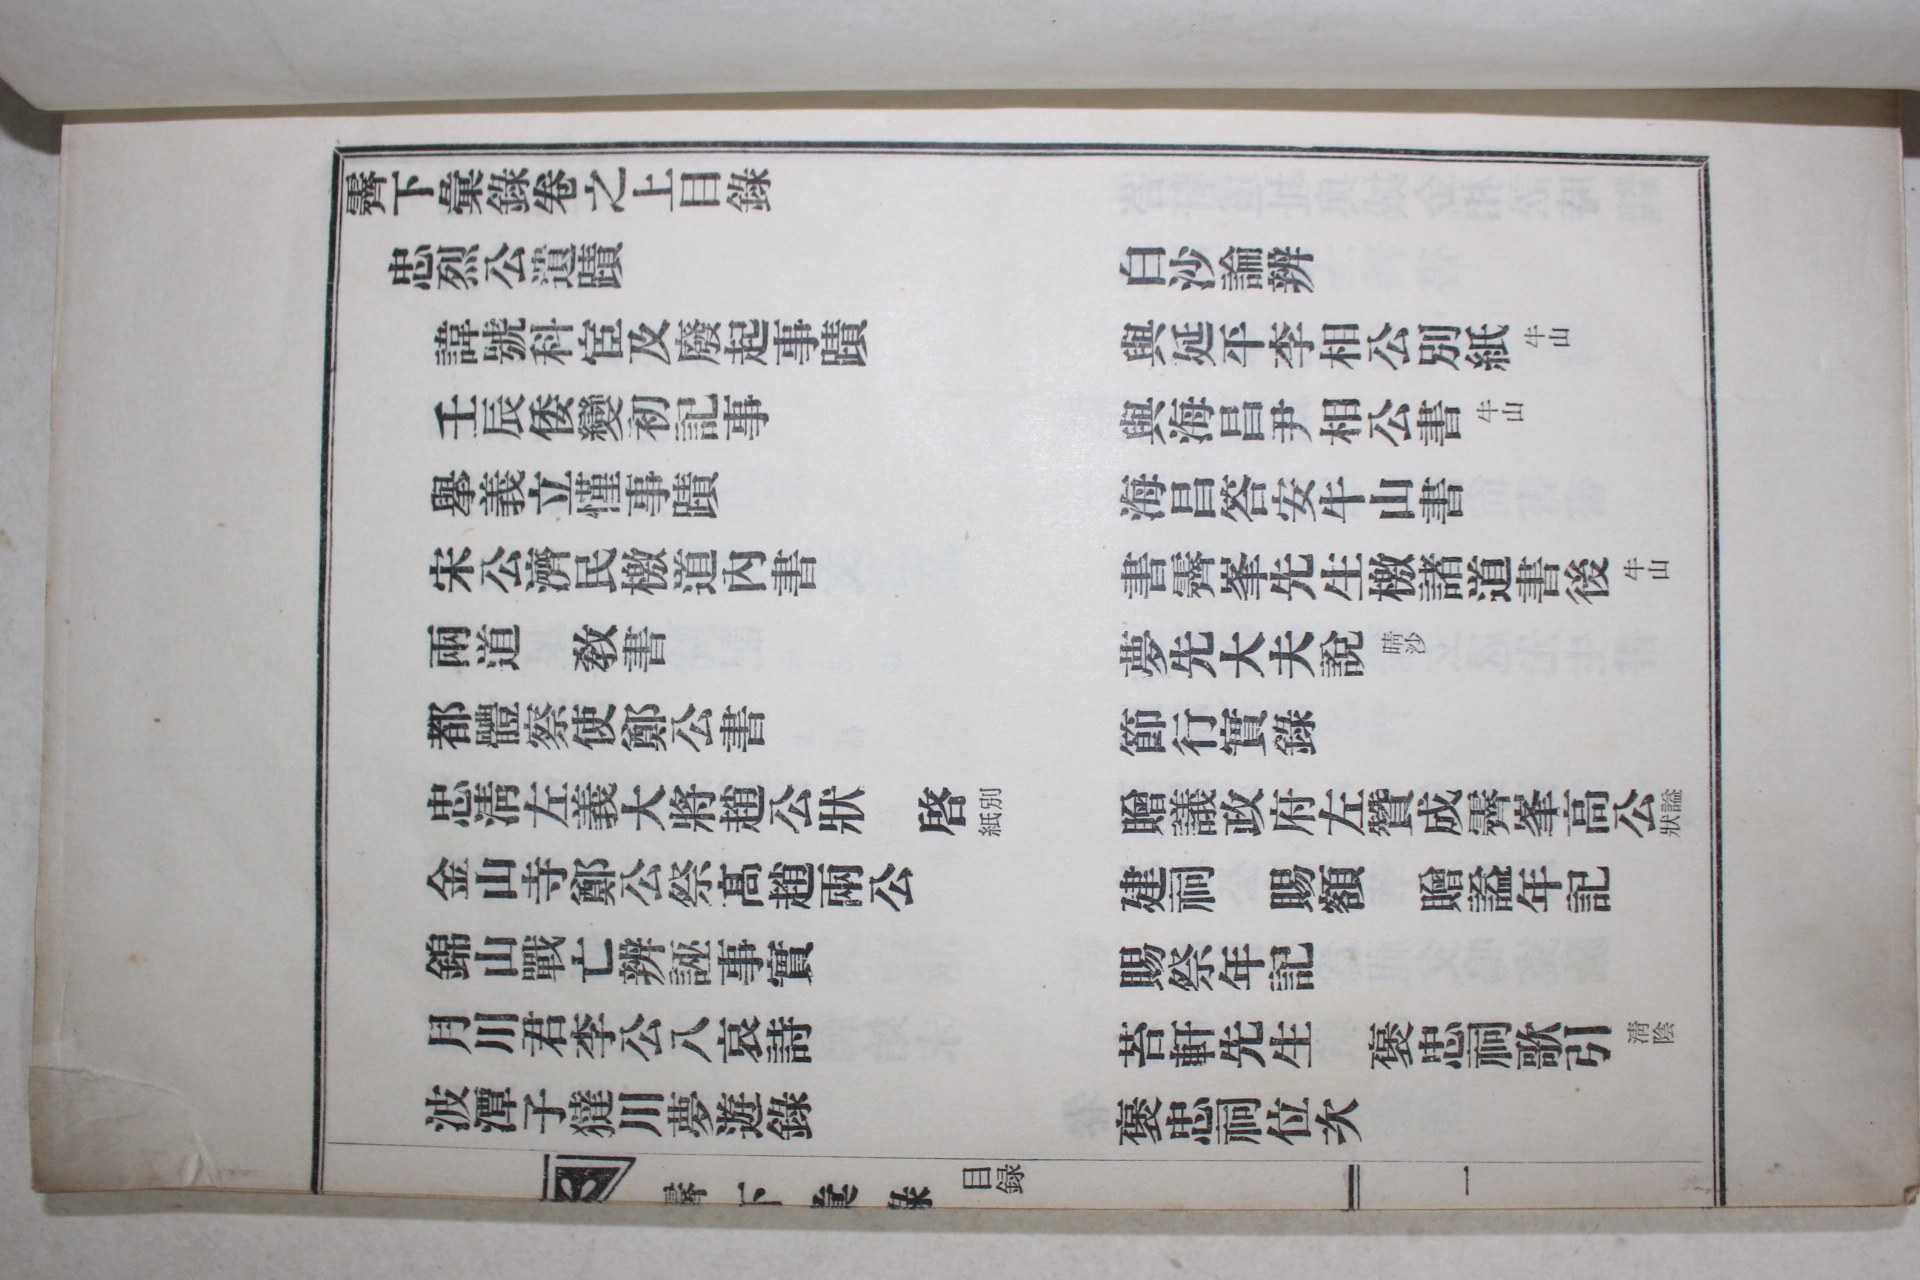 霽下彙錄卷之上目錄
忠烈公遺蹟
諱號科宦及廢起事蹟
壬辰倭變初記事
擧義立慬事蹟
宋公濟民檄道內書
兩道 敎書
都體察使鄭公書
忠淸左義大將趙公狀 啓 別紙
金山寺鄭公祭髙趙兩公
錦山戰亡辨誣事實
月川君李公八哀詩
波潭子㺚川夢遊錄
白沙論辨
與延平李相公別紙 牛山
與海昌尹相公書 牛山
海昌答安牛山書
書霽峯先生檄諸道書後 牛山
夢先大夫說 晴沙
節行實錄
贈議政府左贊成霽峯高公諡狀
建祠 賜額 贈諡年記
賜祭年記
苔軒先生 褒忠祠歌引 淸陰
褒忠祠位次
霽下彙錄 目錄 一